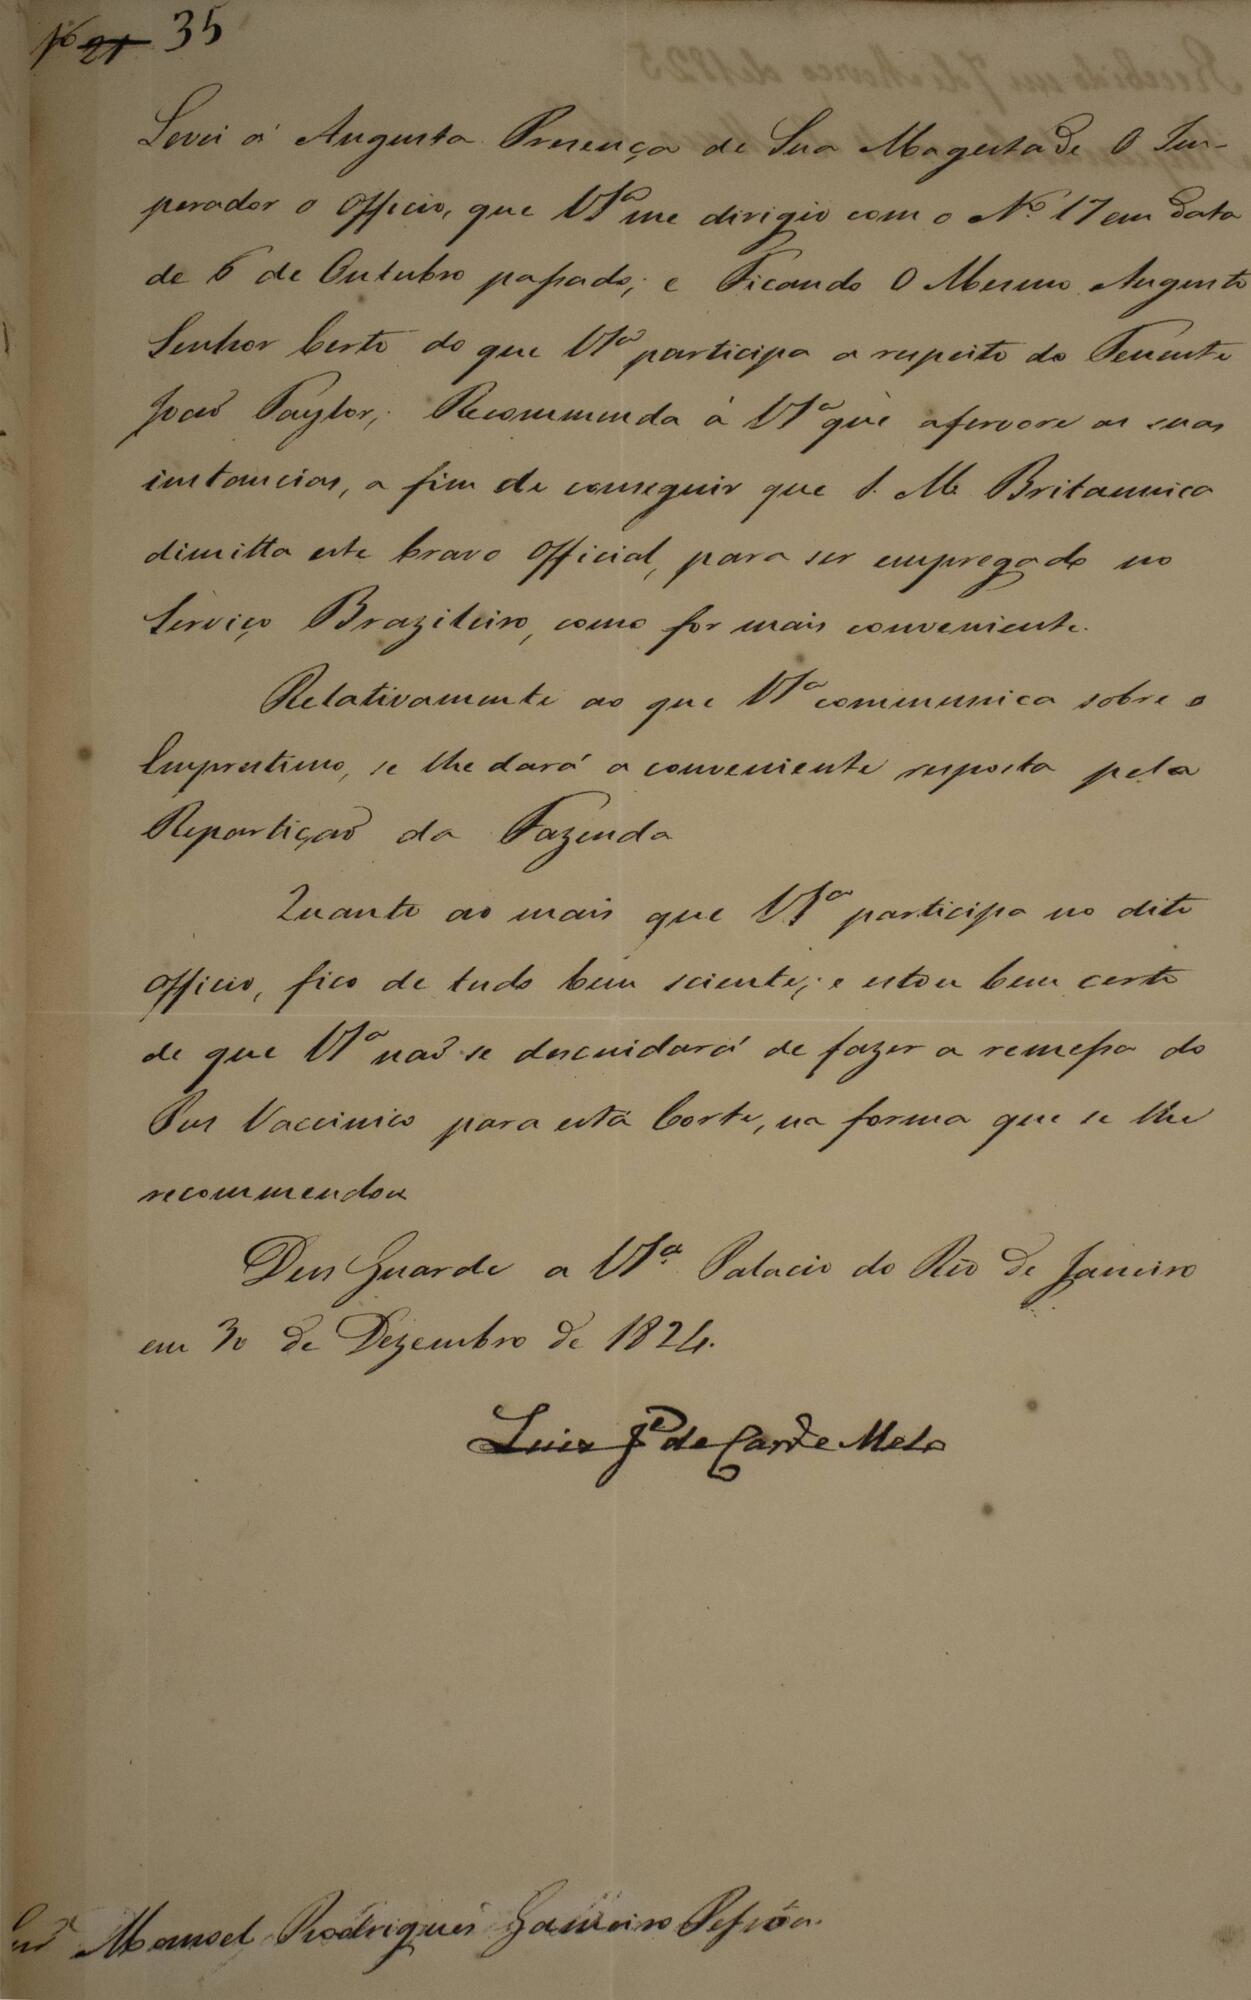 Nº 21 35
Levei á Augusta Presença de Sua Magestade O Im-
perador o Officio, que VSª me dirigio com o Nº 17 em data
de 6 de Outubro passado; e Ficando O Mesmo Augusto
Senhor Certo do que VSª participa a respeito do Tenente
João Taylor, Recommenda á VSª que afervore as suas
instancias, a fim de conseguir que S. M. Britannica
dimitta este bravo Official, para ser empregado no
Serviço Brazileiro, como for mais conveniente.
Relativamente ao que VSª communica sobre o
Emprestimo, se lhe dará a conveniente resposta pela
Repartição da Fazenda
Quanto ao mais que VSª participa no dito
Officio, fico de tudo bem sciente; e estou bem certo
de que VSª não se descuidará de fazer a remessa do
Pus Vaccinico para esta Corte, na forma que se lhe
recommendou
Deus Guarde a VSª. Palacio do Rio de Janeiro
em 30 de Dezembro de 1824.
Luis Jé de Carvº e Melo
Manoel Rodrigues Gameiro Pessôa.